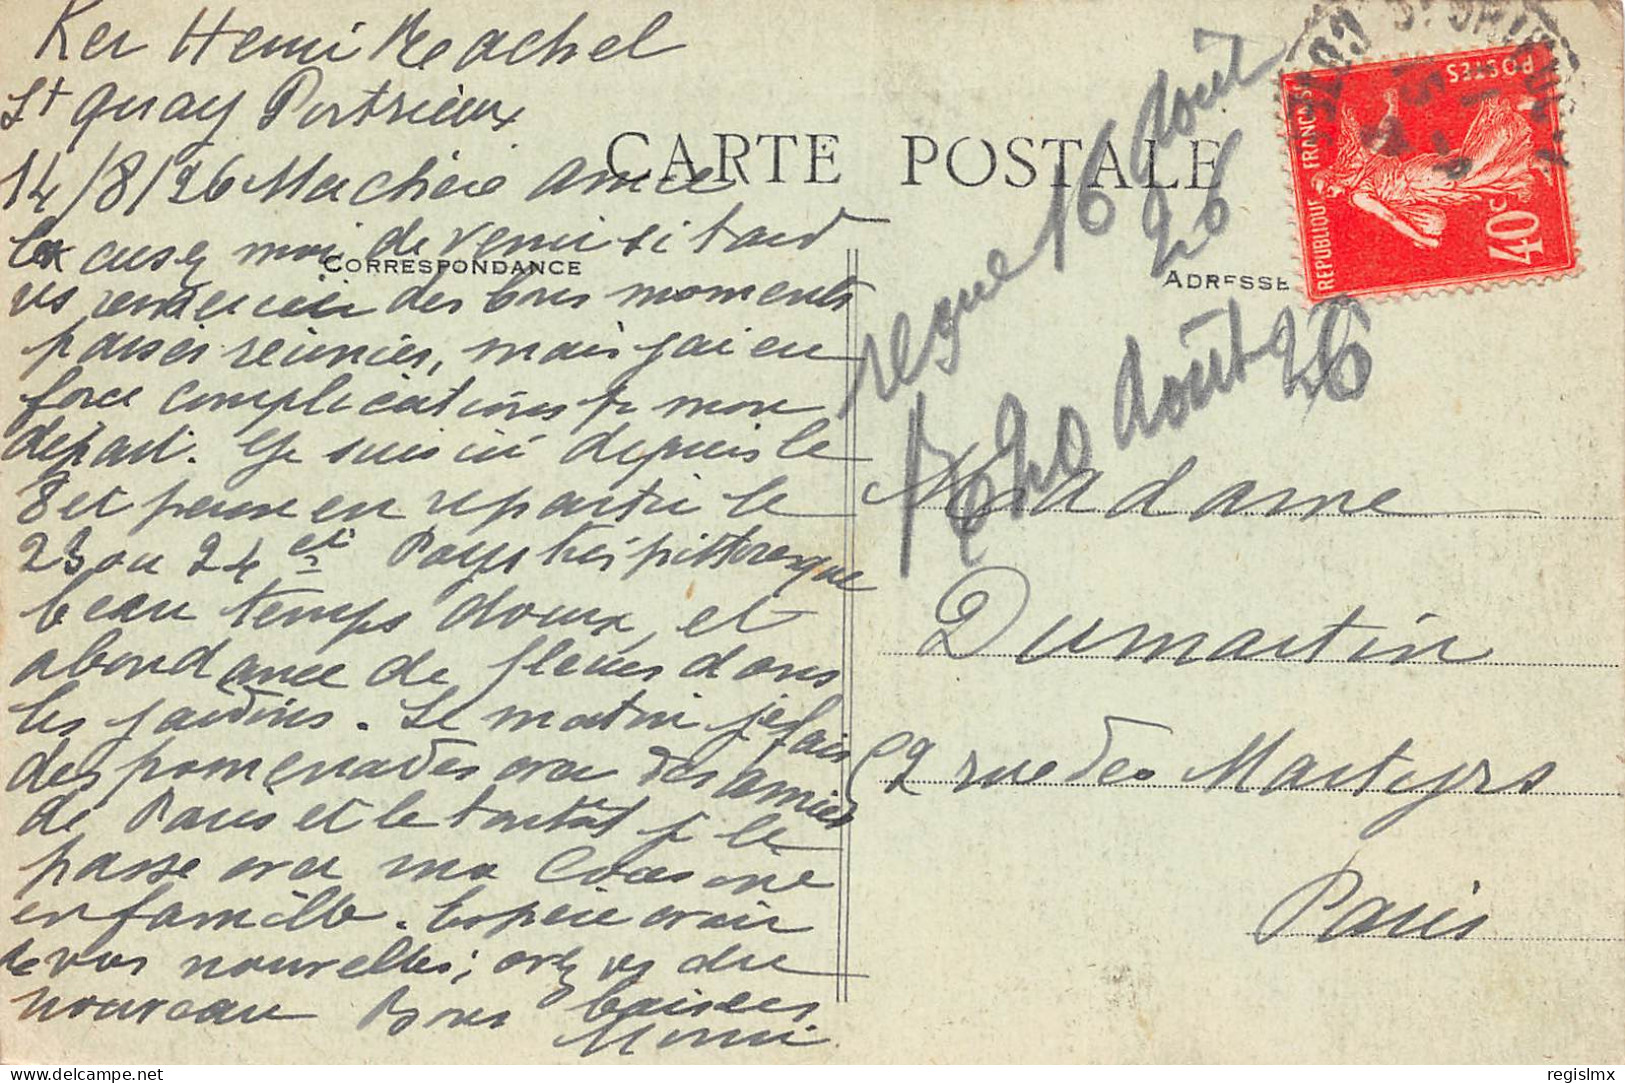 Ker Henri Reachel
St Quay Portrieux
14/8/26 Ma chère amie
CARTE POSTALE
Excusez moi de venir si tard
CORRESPONDANCE
vs remercier des bons moments
passés réunies, mais j'ai eu
force complications pr mon
départ. Je suis ici depuis le
8 et pense en repartir le
23 ou 24 ct Pays très pittoresque
beau temps doux, et
abondance de fleurs dans
les jardins. Le matin je fais
des promenades avec des amies
de Paris et le tantôt je le
passe avec ma Cousine
en famille. Espère avoir
de vos nouvelles; avez vs du
nouveau Bons baisers
Mimi
reçue 16 Août
26
R 20 Août 26
ADRESSE
REPUBLIQUE FRANÇAISE
POSTES
40c
Madame
Dumartin
52 rue des Martyrs
Paris
delcampe.net
regislmx